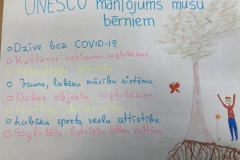 UNESCO mantojums mūsu
bērniem
Dzīve bez COVID-19.
Kultūras mantojuma saglabāšana
Jaunu, labāku mācību sistēmu.
Dabas objektu saglabāšana
Labāku sporta skolu attīstību.
Saglabātu latviešu valodu, kultūru.